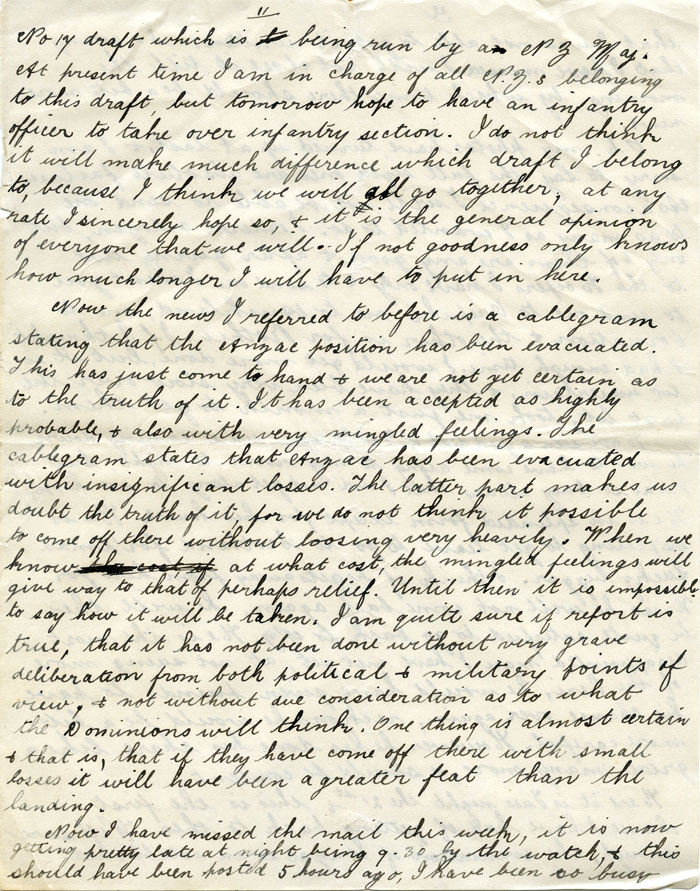 11
No 17 draft which is being run by a N Z Maj.
At present time I am in charge of all N.Z.s belonging
to this draft, but tomorrow hope to have an infantry
officer to take over infantry section. I do not think
it will make much difference which draft I belong
to, because I think we will all go together, at any
rate I sincerely hope so, & it is the general opinion
of everyone that we will. If not goodness only knows
how much longer I will have to put in here.
Now the news I referred to before is a cablegram
stating that the Anzac position has been evacuated.
This has just come to hand & we are not yet certain as
to the truth of it. It has been accepted as highly
probable, & also with very mingled feelings. The
cablegram states that Anzac has been evacuated
with insignificant losses. The latter part makes us
doubt the truth of it, for we do not think it possible
to come off there without loosing very heavily. When we
know the cost of at what cost, the mingled feelings will
give way to that of perhaps relief. Until then it is impossible
to say how it will be taken. I am quite sure if report is
true, that it has not been done without very grave
deliberation from both political & military points of
view, & not without due consideration as to what
the Dominions will think. One thing is almost certain
& that is, that if they have come off there with small
losses it will have been a greater feat than the
landing.
Now I have missed the mail this week, it is now
getting pretty late at night being 9.30 by the watch, & this
should have been posted 5 hours ago, I have been so busy